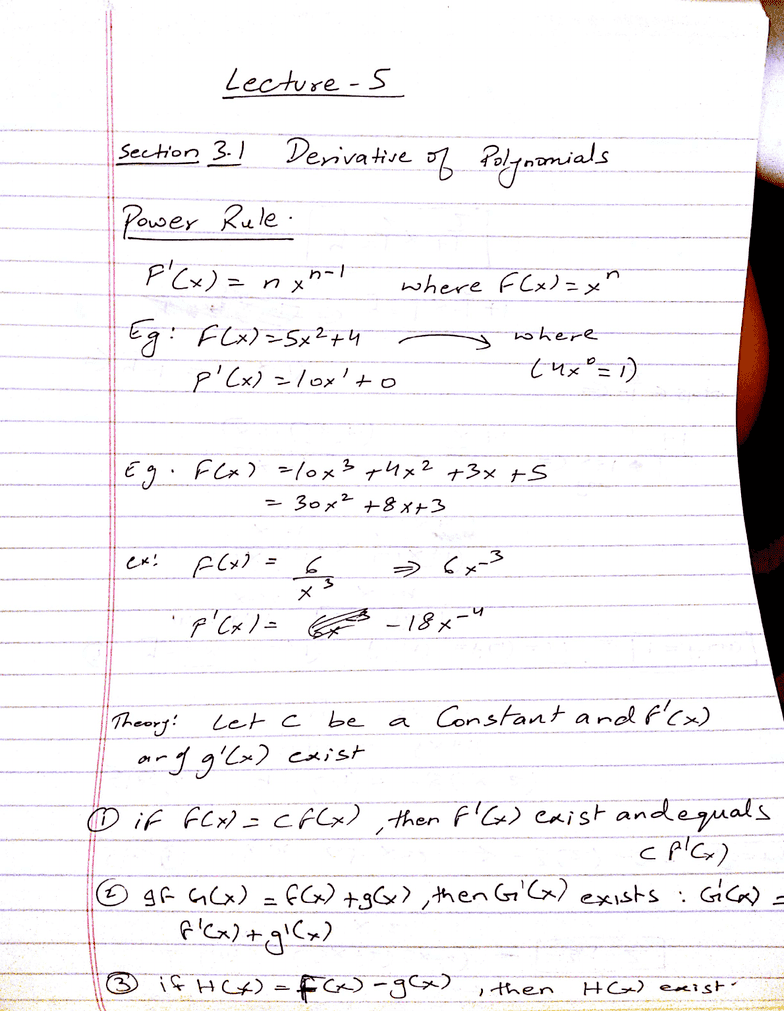 Lecture - 5
Section 3.1 Derivative of Polynomials
Power Rule.
F'(x) = n x^{n-1} where F(x) = x^n
Eg: F(x) = 5x^2 + 4 → where
F'(x) = 10x^1 + 0 (4x^0 = 1)
Eg. F(x) = 10x^3 + 4x^2 + 3x + 5
= 30x^2 + 8x + 3
ex: F(x) = 6/x^3 ⇒ 6x^{-3}
F'(x) = -18x^{-4}
Theory: Let C be a Constant and f'(x)
and g'(x) exist
① if F(x) = C f(x), then F'(x) exist and equals
C f'(x)
② If G(x) = f(x) + g(x), then G'(x) exists : G'(x) =
f'(x) + g'(x)
③ if H(x) = F(x) - g(x), then H(x) exist.